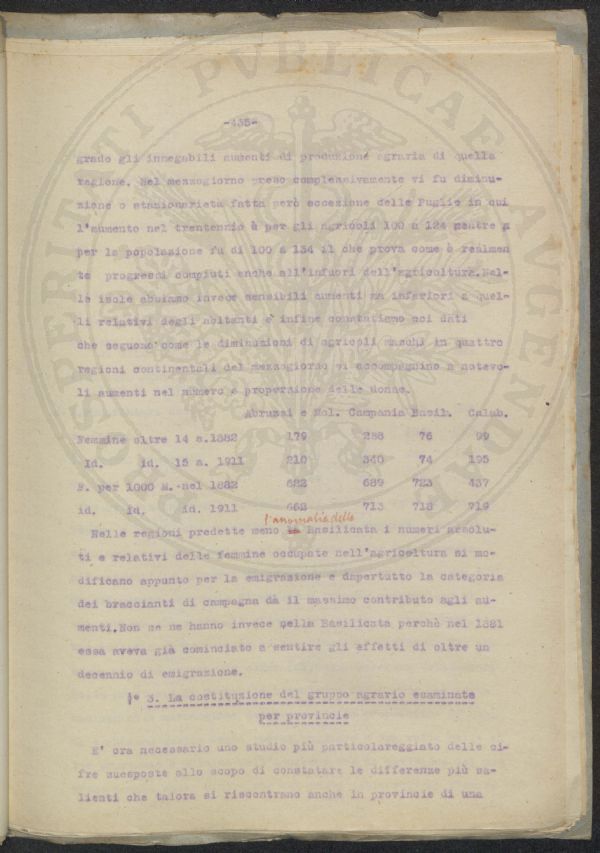 -435-
grado gli innegabili aumenti di produzione agraria di quella
ragione. Nel mezzogiorno preso complessivamente vi fu diminu-
zione o stazionarietà fatta però eccezione delle Puglie in cui
l'aumento nel trentennio è per gli agricoli 100 a 124 mentre
per la popolazione fu di 100 a 134 il che prova come è realmen
te progressi compiuti anche all'infuori dell'agricoltura. Nel-
le isole abbiamo invece sensibili aumenti ma inferiori a quel-
li relativi degli abitanti e infine constatiamo coi dati
che seguono come le diminuzioni di agricoli maschi in quattro
regioni continentali del mezzogiorno vi accompagnino a notevo-
li aumenti nel numero e proporzione delle donne.
Abruzzi e Mol. Campania Basil. Calab.
Femmine oltre 14 a. 1882 179 288 76 99
Id. id. 15 a. 1911 210 340 74 195
F. per 1000 M. nel 1882 622 689 723 437
id. id. id. 1911 662 713 718 719
l'anomalia della
Nelle regioni predette meno la Basilicata i numeri assolu-
ti e relativi delle femmine occupate nell'agricoltura si mo-
dificano appunto per la emigrazione e dapertutto la categoria
dei braccianti di campagna dà il massimo contributo agli au-
menti. Non se ne hanno invece nella Basilicata perchè nel 1881
essa aveva già cominciato a sentire gli effetti di oltre un
decennio di emigrazione.
§° 3. La costituzione del gruppo agrario esaminato
per provincie
E' ora necessario uno studio più particolareggiato delle ci-
fre suesposte allo scopo di constatare le differenze più sa-
lienti che talora si riscontrano anche in provincie di una
PROSPERITATI PVBLICAE AVGENDAE